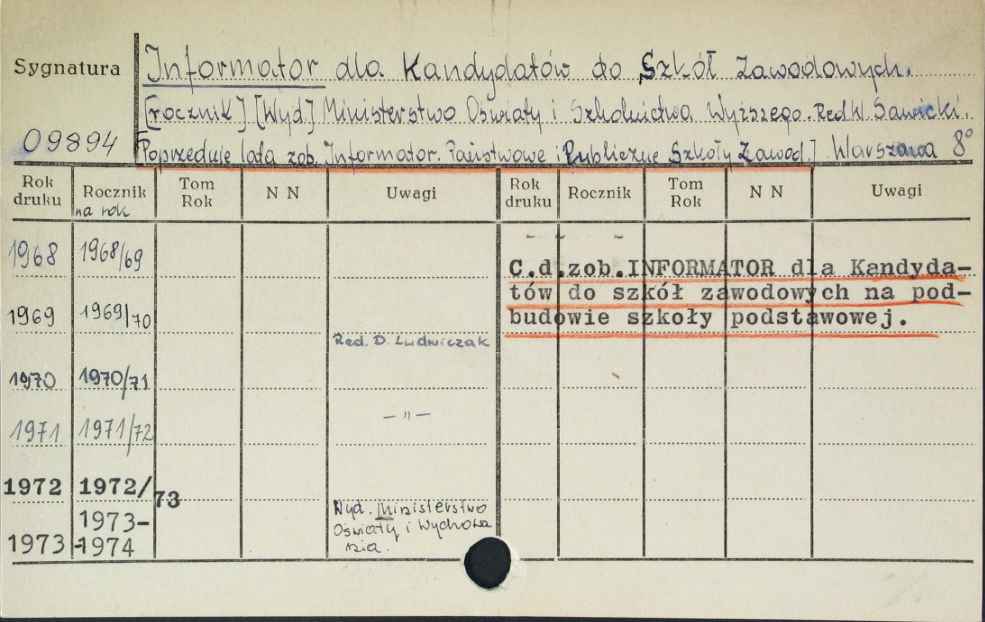 Sygnatura
Informator dla Kandydatów do Szkół Zawodowych.
[rocznik] [Wyd] Ministerstwo Oświaty i Szkolnictwa Wyższego. Red. W. Sawicki.
09894
[Poprzednie lata zob. Informator. Państwowe i Publiczne Szkoły Zawod.] Warszawa 8°
Rok druku Rocznik na rok Tom Rok N N Uwagi Rok druku Rocznik Tom Rok N N Uwagi
1968 1968/69
C.d.zob.INFORMATOR dla Kandyda-
tów do szkół zawodowych na pod-
budowie szkoły podstawowej.
1969 1969/70
Red. D. Ludwiczak
1970 1970/71
1971 1971/72 — " —
1972 1972/73
Wyd. Ministerstwo
Oświaty i Wychowa
nia.
1973 1973-
-1974